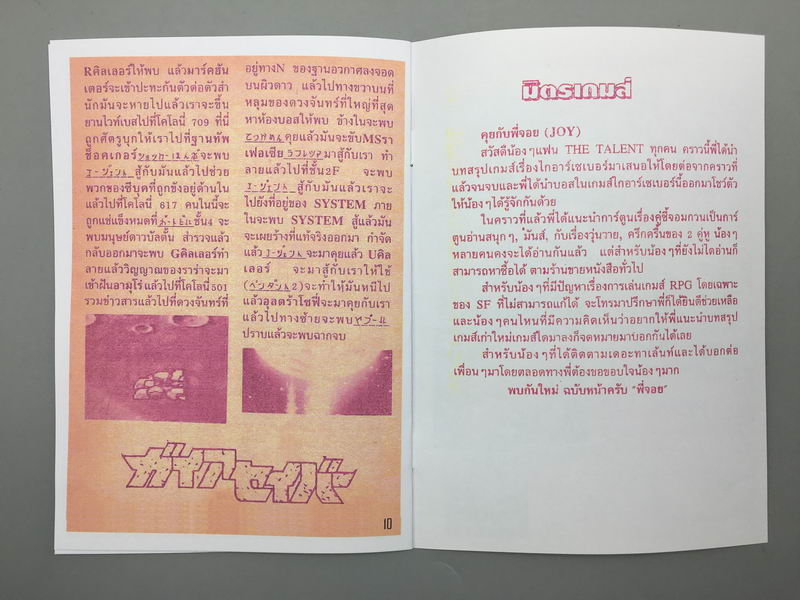 Rคิลเลอร์ให้พบ แล้วมาร์คฮัน
เตอร์จะเข้าปะทะกันตัวต่อตัวสำ
นักมันจะหายไปแล้วเราจะขึ้น
ยานไวท์เบสไปที่โคโลนี่ 709 ที่นี่
ถูกศัตรูบุกให้เราไปที่ฐานทัพ
ช็อคเกอร์ จะพบ
エージェント สู้กับมันแล้วไปช่วย
พวกของชีบุคที่ถูกขังอยู่ด้านใน
แล้วไปที่โคโลนี่ 617 คนในนี้จะ
ถูกแช่แข็งหมดที่ ชั้น4 จะ
พบมนุษย์ดาวบัลตั้น สำรวจแล้ว
กลับออกมาจะพบ Gคิลเลอร์ทำ
ลายแล้ววิญญาณของราร่าจะมา
เข้าฝันอามุโร่แล้วไปที่โคโลนี่ 501
รวมข่าวสารแล้วไปที่ดวงจันทร์ที่
อยู่ทางN ของฐานอวกาศลงจอด
บนผิวดาว แล้วไปทางขวาบนที่
หลุมของดวงจันทร์ที่ใหญ่ที่สุด
หาห้องบอสให้พบ ข้างในจะพบ
คุยแล้วมันจะขับMSรา
เฟอเซีย ラフレシア มาสู้กับเรา ทำ
ลายแล้วไปที่ชั้น2F จะพบ
エージェント สู้กับมันแล้วเราจะ
ไปยังที่อยู่ของ SYSTEM ภาย
ในจะพบ SYSTEM สู้แล้วมัน
จะเผยร่างที่แท้จริงออกมา กำจัด
แล้ว エージェント จะมาคุยแล้ว Uคิล
เลอร์ จะมาสู้กับเราให้ใช้
(ペンダント2)จะทำให้มันหนีไป
แล้วอุลตร้าโซฟี่จะมาคุยกับเรา
แล้วไปทางซ้ายจะพบ ヤプール
ปราบแล้วจะพบฉากจบ
ガイアセイバー
10
มิตรเกมส์
คุยกับพี่จอย (JOY)
สวัสดีน้องๆแฟน THE TALENT ทุกคน คราวนี้พี่ได้นำ
บทสรุปเกมส์เรื่องไกอาร์เซเบอร์มาเสนอให้โดยต่อจากคราวที่
แล้วจนจบและพี่ได้นำบอสในเกมส์ไกอาร์เซเบอร์นี้ออกมาโชว์ตัว
ให้น้องๆได้รู้จักกันด้วย
ในคราวที่แล้วพี่ได้แนะนำการ์ตูนเรื่องคู่ซี้จอมกวนเป็นการ์
ตูนอ่านสนุกๆ, มันส์, กับเรื่องวุ่นวาย, ครึกครื้นของ 2 คู่หู น้องๆ
หลายคนคงจะได้อ่านกันแล้ว แต่สำหรับน้องๆที่ยังไม่ได้อ่านก็
สามารถหาซื้อได้ ตามร้านขายหนังสือทั่วไป
สำหรับน้องๆที่มีปัญหาเรื่องการเล่นเกมส์ RPG โดยเฉพาะ
ของ SF ที่ไม่สามารถแก้ได้ จะโทรมาปรึกษาพี่ก็ได้ยินดีช่วยเหลือ
และน้องๆคนไหนที่มีความคิดเห็นว่าอยากให้พี่แนะนำบทสรุป
เกมส์เก่าใหม่เกมส์ใดมาลงก็จดหมายมาบอกกันได้เลย
สำหรับน้องๆที่ได้ติดตามเดอะทาเล้นท์และได้บอกต่อ
เพื่อนๆมาโดยตลอดทางพี่ต้องขอขอบใจน้องๆมาก
พบกันใหม่ ฉบับหน้าครับ "พี่จอย"